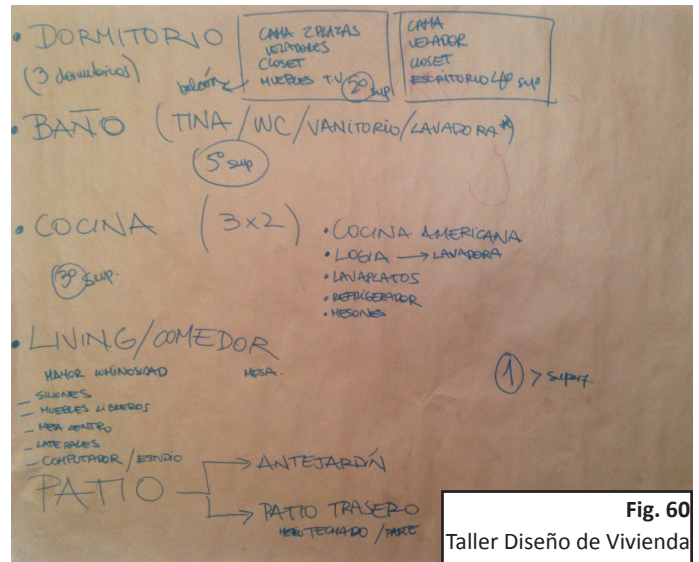 • DORMITORIO
(3 dormitorios)
balcón
CAMA 2 PLAZAS
VELADORES
CLOSET
MUEBLES T.V 2º sup
CAMA
VELADOR
CLOSET
ESCRITORIO 4º sup
• BAÑO (TINA/WC/VANITORIO/LAVADORA*)
5º sup
• COCINA (3x2)
3º sup.
• COCINA AMERICANA
• LOGIA → LAVADORA
• LAVAPLATOS
• REFRIGERADOR
• MESONES
• LIVING/COMEDOR
MAYOR LUMINOSIDAD MESA.
1 > superf.
— SILLONES
— MUEBLES LIBREROS
— MESA CENTRO
— LATERALES
— COMPUTADOR / ESTUDIO
PATIO → ANTEJARDÍN
→ PATIO TRASERO
TECHADO / PARTE
Fig. 60
Taller Diseño de Vivienda